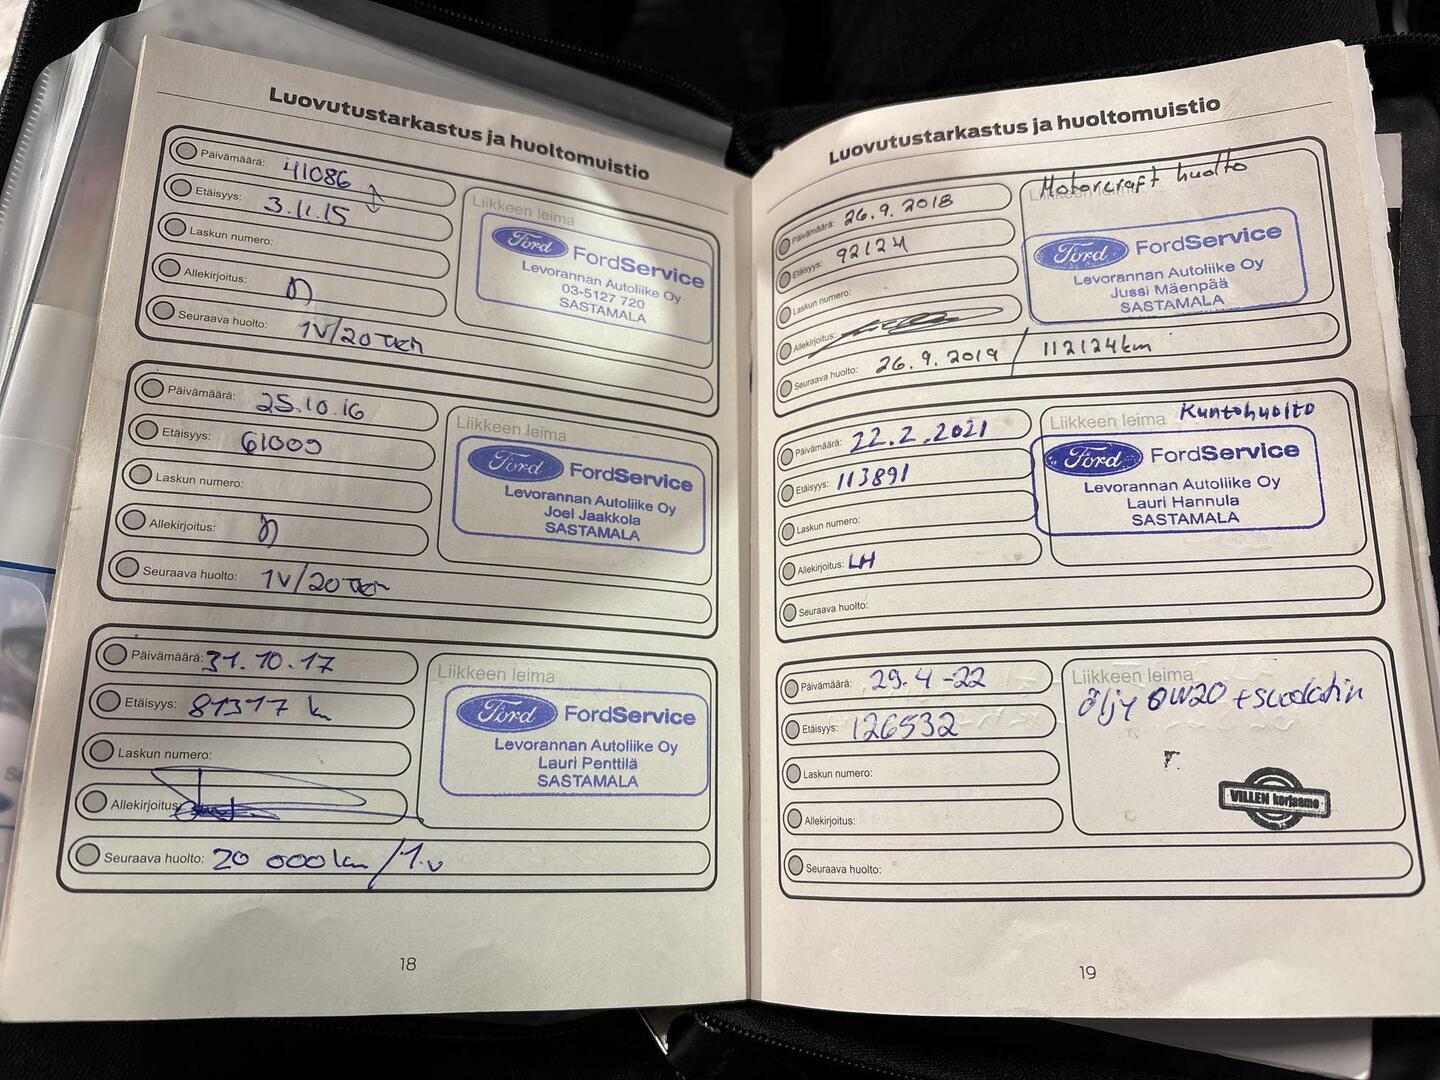 Luovutustarkastus ja huoltomuistio
Päivämäärä: 41086
Etäisyys: 3.11.15
Laskun numero:
Allekirjoitus:
Seuraava huolto: 1V/20 TKM
Liikkeen leima
Ford FordService
Levorannan Autoliike Oy
03-5127 720
SASTAMALA
Päivämäärä: 25.10.16
Etäisyys: 61009
Laskun numero:
Allekirjoitus:
Seuraava huolto: 1V/20 TKM
Liikkeen leima
Ford FordService
Levorannan Autoliike Oy
Joel Jaakkola
SASTAMALA
Päivämäärä: 31.10.17
Etäisyys: 81317 km
Laskun numero:
Allekirjoitus:
Seuraava huolto: 20 000 km / 1.v
Liikkeen leima
Ford FordService
Levorannan Autoliike Oy
Lauri Penttilä
SASTAMALA
18
Luovutustarkastus ja huoltomuistio
Päivämäärä: 26.9.2018
Etäisyys: 92124
Laskun numero:
Allekirjoitus:
Seuraava huolto: 26.9.2019 / 112124km
Motorcraft huolto
Liikkeen leima
Ford FordService
Levorannan Autoliike Oy
Jussi Mäenpää
SASTAMALA
Päivämäärä: 22.2.2021
Etäisyys: 113891
Laskun numero:
Allekirjoitus: LH
Seuraava huolto:
Liikkeen leima Kuntohuolto
Ford FordService
Levorannan Autoliike Oy
Lauri Hannula
SASTAMALA
Päivämäärä: 29.4-22
Etäisyys: 126532
Laskun numero:
Allekirjoitus:
Seuraava huolto:
Liikkeen leima
öljy 0W20 + suodatin
VILLEN korjaamo
19